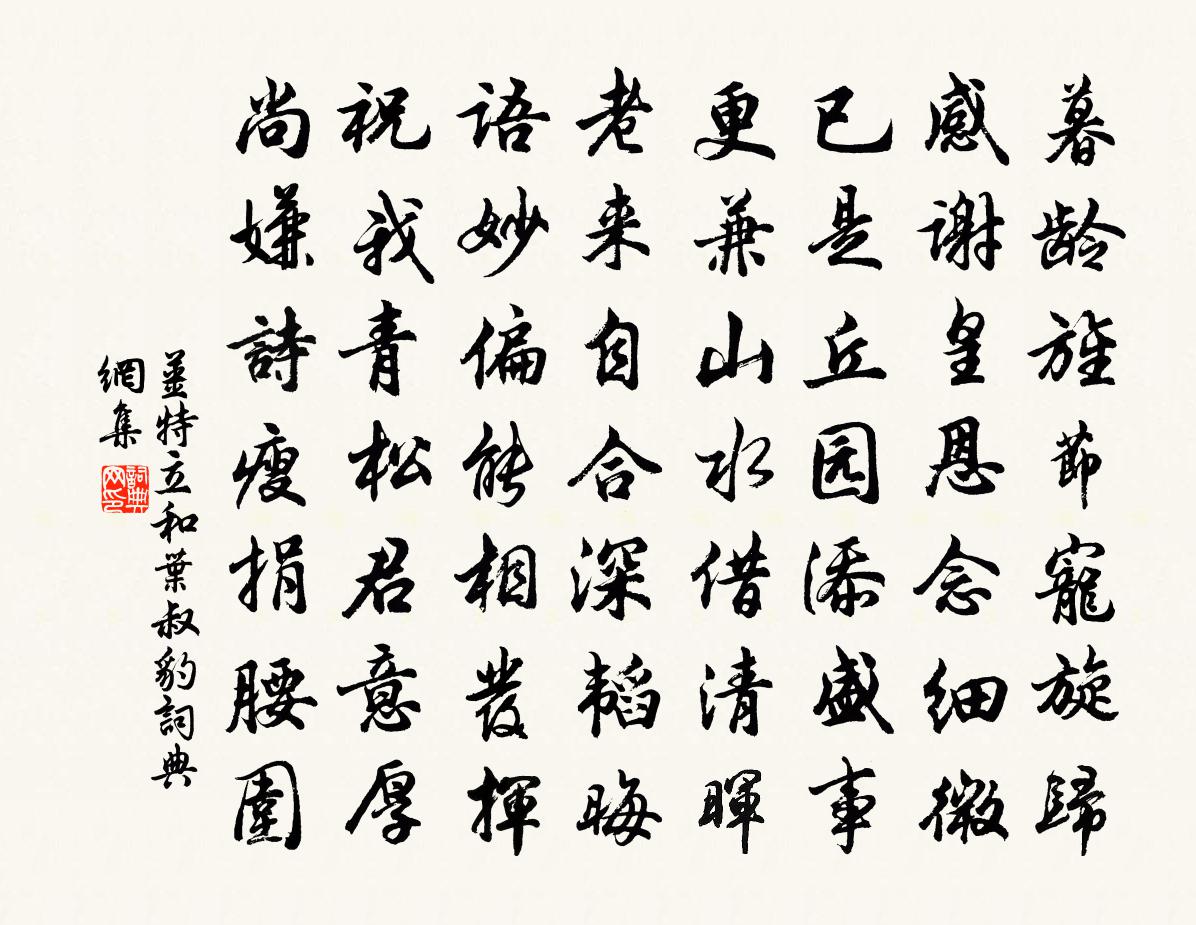 暮龄旌節寵旋歸
感謝皇恩念细微
已是丘园添盛事
更兼山水借清暉
老来自合深韬晦
语妙偏能相發揮
祝我青松君意厚
尚嫌詩瘦捐腰圍
薑特立和葉叔豹詞典
網集
詞典
网印